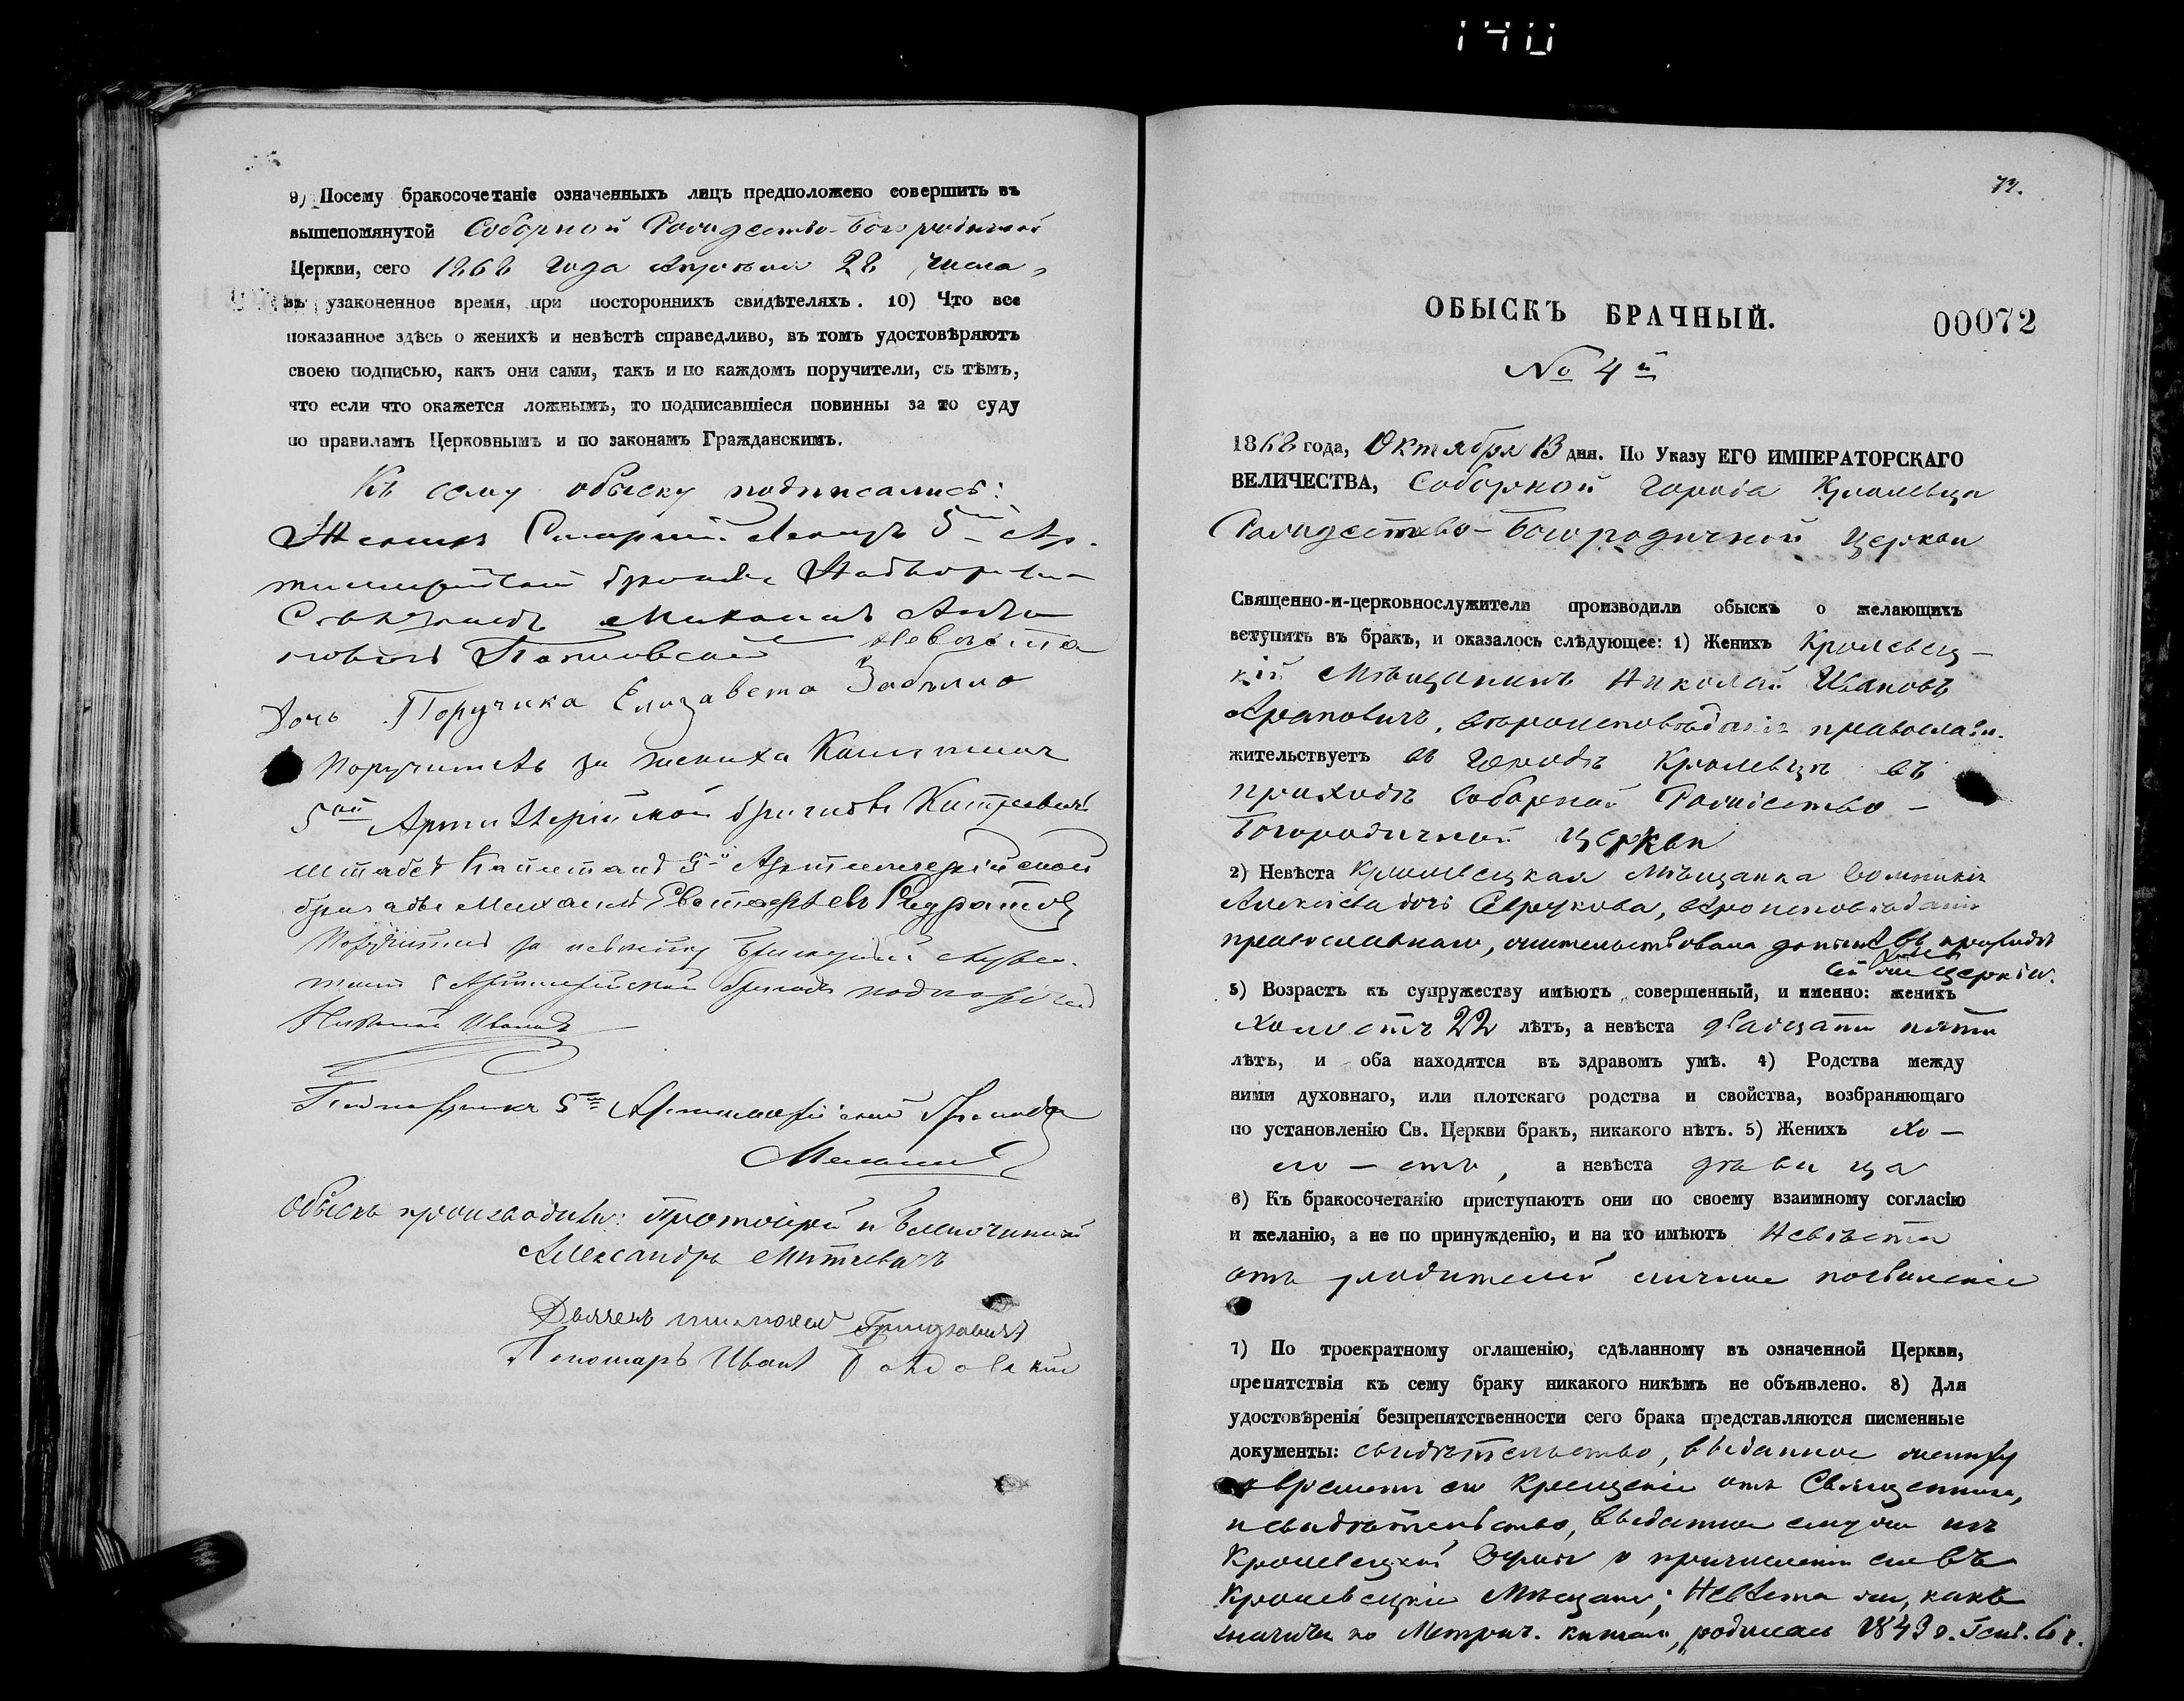 140
9) Посему бракосочетаніе означенныхъ лицъ предположено совершить въ
вышепомянутой Соборной Рождество-Богородичной
Церкви, сего 1868 года Апрѣля 28 числа,
въ узаконенное время, при постороннихъ свидѣтеляхъ. 10) Что все
показанное здѣсь о женихѣ и невѣстѣ справедливо, въ томъ удостовѣряютъ
своею подписью, какъ они сами, такъ и по каждомъ поручители, съ тѣмъ,
что если что окажется ложнымъ, то подписавшіеся повинны за то суду
по правиламъ Церковнымъ и по законамъ Гражданскимъ.
Къ сему обыску подписались:
Женихъ Старшій Лекарь 5й Ар-
тиллерійской бригады Надворный
Совѣтникъ Михаилъ
Невѣста
Дочь Поручика Елизавета Забѣлло
Поручитель за жениха Капитанъ
5ой Артиллерійской бригады
Штабсъ Капитанъ 5й Артиллерійской
бригады Михаилъ Евстафьевъ
Поручитель за невѣсту
5 Артиллерійской бригады подпоручикъ
Николай Ивановъ
Подпоручикъ 5й Артиллерійской бригады
Обыскъ производили: Протоіерей и Благочинный
Александръ Маткевичъ
Дьячекъ
Пономарь Иванъ
72.
ОБЫСКЪ БРАЧНЫЙ.
00072
№ 4й
1868 года, Октября 13 дня. По Указу ЕГО ИМПЕРАТОРСКАГО
ВЕЛИЧЕСТВА, Соборной города Кролевца
Рождество-Богородичной Церкви
Священно-и-церковнослужители производили обыскъ о желающихъ
вступить въ бракъ, и оказалось слѣдующее: 1) Женихъ Кролевец-
кій Мѣщанинъ Николай Ивановъ
вѣроисповѣданія православн.
жительствуетъ въ городѣ Кролевцѣ въ
приходѣ Соборной Рождество-
Богородичной церкви
2) Невѣста Кролевецкая Мѣщанка
Алексѣева дочь вѣроисповѣданія
православнаго, жительствовала донынѣ въ приходѣ
сей же церкви.
3) Возрастъ къ супружеству имѣютъ совершенный, и именно: женихъ
холостъ 22 лѣтъ, а невѣста двадцати пяти
лѣтъ, и оба находятся въ здравомъ умѣ. 4) Родства между
ними духовнаго, или плотскаго родства и свойства, возбраняющаго
по установленію Св. Церкви бракъ, никакого нѣтъ. 5) Женихъ хо-
ло-стъ, а невѣста дѣвица
6) Къ бракосочетанію приступаютъ они по своему взаимному согласію
и желанію, а не по принужденію, и на то имѣютъ Невѣста
отъ родителей личное позволеніе
7) По троекратному оглашенію, сдѣланному въ означенной Церкви,
препятствія къ сему браку никакого никѣмъ не объявлено. 8) Для
удостовѣренія безпрепятственности сего брака представляются писменные
документы: свидѣтельство, выданное жениху
о времени его крещенія отъ Священника,
и свидѣтельство, выданное ему же изъ
Кролевецкой Думы о причисленіи его въ
Кролевецкіе Мѣщане; Невѣста же, какъ
значится по Метрич. книгамъ, родилась 1843 г. Сент. 6 ч.